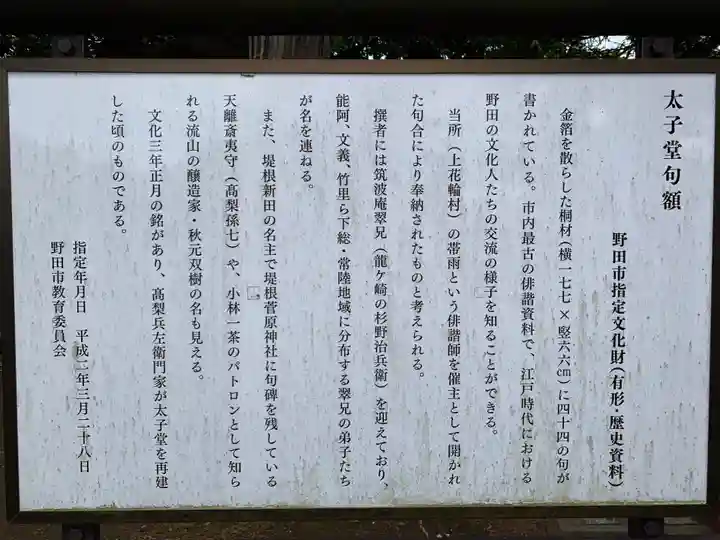 太子堂句額
野田市指定文化財(有形・歴史資料)
金箔を散らした桐材(横一七七×竪六六㎝)に四十四の句が
書かれている。市内最古の俳諧資料で、江戸時代における
野田の文化人たちの交流の様子を知ることができる。
当所(上花輪村)の帯雨という俳諧師を催主として開かれ
た句合により奉納されたものと考えられる。
撰者には筑波庵翠兄(龍ヶ崎の杉野治兵衛)を迎えており、
能阿、文義、竹里ら下総・常陸地域に分布する翠兄の弟子たち
が名を連ねる。
また、堤根新田の名主で堤根菅原神社に句碑を残している
天離斎夷守(髙梨孫七)や、小林一茶のパトロンとして知ら
れる流山の醸造家・秋元双樹の名も見える。
文化三年正月の銘があり、髙梨兵左衛門家が太子堂を再建
した頃のものである。
指定年月日 平成二年三月二十八日
野田市教育委員会